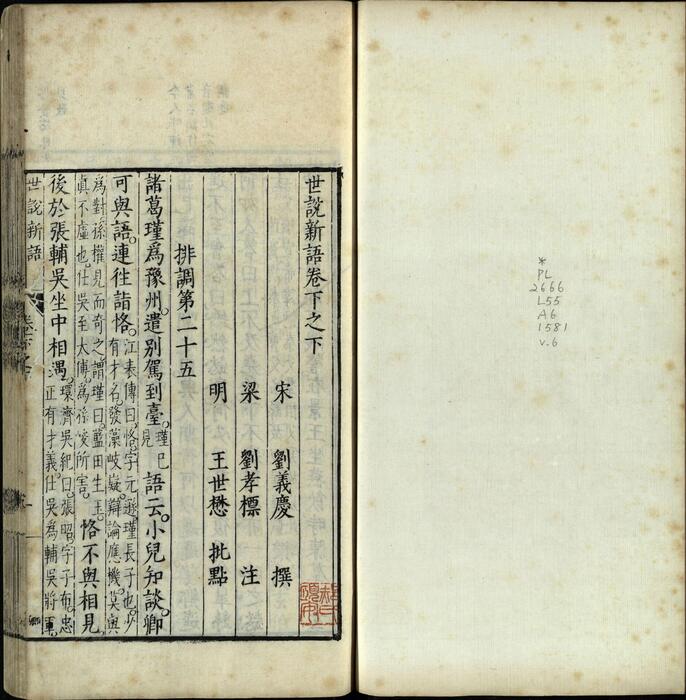 世說新語卷下之下
宋 劉義慶 撰
梁 劉孝標 注
明 王世懋 批點
排調第二十五
諸葛瑾爲豫州。遣別駕到臺。瑾已見語云。小兒知談。卿
可與語。連往詣恪。江表傳曰。恪。字元遜。瑾長子也。少有才名。發藻岐嶷。辯論應機。莫與
爲對。孫權見而奇之。謂瑾曰。藍田生玉。眞不虛也。仕吳至太傅。爲孫峻所害。恪不與相見
後於張輔吳坐中相遇。環濟吳紀曰。張昭。字子布。忠正有才義。仕吳。爲輔吳將軍。
世說新語
*
PL
2666
L55
A6
1581
v.6